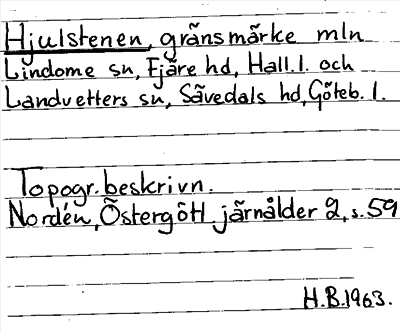 Hjulstenen, gränsmärke mln
Lindome sn, Fjäre hd, Hall. l. och
Landvetters sn, Sävedals hd, Göteb. l.
Topogr. beskrivn.
Nordén, Östergötl järnålder 2, s. 59
H.B. 1963.